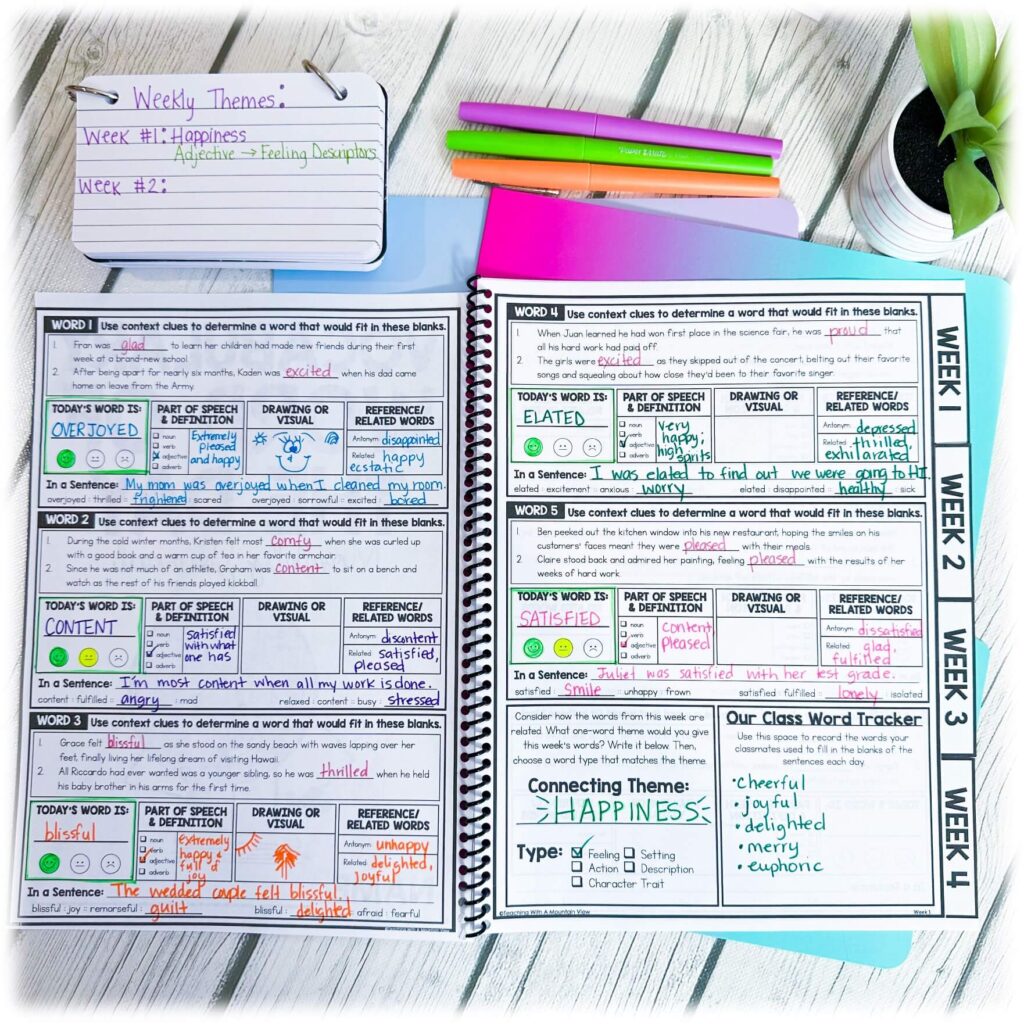 Weekly Themes:
Week #1: Happiness
Adjective → Feeling Descriptors
Week #2:
Paper Mate
WORD 1 Use context clues to determine a word that would fit in these blanks.
1. Fran was glad to learn her children had made new friends during their first
week at a brand-new school.
2. After being apart for nearly six months, Kaden was excited when his dad came
home on leave from the Army.
TODAY'S WORD IS: PART OF SPEECH & DEFINITION DRAWING OR VISUAL REFERENCE/ RELATED WORDS
OVERJOYED
noun
verb
adjective
adverb
Extremely
pleased
and happy
Antonym disappointed
Related happy
ecstatic
In a Sentence: My mom was overjoyed when I cleaned my room.
overjoyed : thrilled :: frightened : scared overjoyed : sorrowful :: excited : bored
WORD 2 Use context clues to determine a word that would fit in these blanks.
1. During the cold winter months, Kristen felt most comfy when she was curled up
with a good book and a warm cup of tea in her favorite armchair.
2. Since he was not much of an athlete, Graham was content to sit on a bench and
watch as the rest of his friends played kickball.
TODAY'S WORD IS: PART OF SPEECH & DEFINITION DRAWING OR VISUAL REFERENCE/ RELATED WORDS
CONTENT
noun
verb
adjective
adverb
satisfied
with what
one has
Antonym discontent
Related satisfied,
pleased
In a Sentence: I'm most content when all my work is done.
content : fulfilled :: angry : mad relaxed : content :: busy : stressed
WORD 3 Use context clues to determine a word that would fit in these blanks.
1. Grace felt blissful as she stood on the sandy beach with waves lapping over her
feet, finally living her lifelong dream of visiting Hawaii.
2. All Riccardo had ever wanted was a younger sibling, so he was thrilled when he held
his baby brother in his arms for the first time.
TODAY'S WORD IS: PART OF SPEECH & DEFINITION DRAWING OR VISUAL REFERENCE/ RELATED WORDS
blissful
noun
verb
adjective
adverb
extremely
happy &
full of
joy
Antonym unhappy
Related delighted,
joyful
In a Sentence: The wedded couple felt blissful.
blissful : joy :: remorseful : guilt blissful : delighted :: afraid : fearful
©Teaching With A Mountain View
WORD 4 Use context clues to determine a word that would fit in these blanks.
1. When Juan learned he had won first place in the science fair, he was proud that
all his hard work had paid off.
2. The girls were excited as they skipped out of the concert, belting out their favorite
songs and squealing about how close they'd been to their favorite singer.
TODAY'S WORD IS: PART OF SPEECH & DEFINITION DRAWING OR VISUAL REFERENCE/ RELATED WORDS
ELATED
noun
verb
adjective
adverb
very
happy;
high
spirits
Antonym depressed
Related thrilled,
exhilarated
In a Sentence: I was elated to find out we were going to HI.
elated : excitement :: anxious : worry elated : disappointed :: healthy : sick
WORD 5 Use context clues to determine a word that would fit in these blanks.
1. Ben peeked out the kitchen window into his new restaurant, hoping the smiles on his
customers' faces meant they were pleased with their meals.
2. Claire stood back and admired her painting, feeling pleased with the results of her
weeks of hard work.
TODAY'S WORD IS: PART OF SPEECH & DEFINITION DRAWING OR VISUAL REFERENCE/ RELATED WORDS
SATISFIED
noun
verb
adjective
adverb
content,
pleased
Antonym dissatisfied
Related glad,
fulfilled
In a Sentence: Juliet was satisfied with her test grade.
satisfied : smile :: unhappy : frown satisfied : fulfilled :: lonely : isolated
Consider how the words from this week are
related. What one-word theme would you give
this week's words? Write it below. Then,
choose a word type that matches the theme.
Connecting Theme:
HAPPINESS
Type: Feeling Setting
Action Description
Character Trait
Our Class Word Tracker
Use this space to record the words your
classmates used to fill in the blanks of the
sentences each day.
• Cheerful
• joyful
• delighted
• merry
• euphoric
©Teaching With A Mountain View
Week 1
WEEK 1
WEEK 2
WEEK 3
WEEK 4